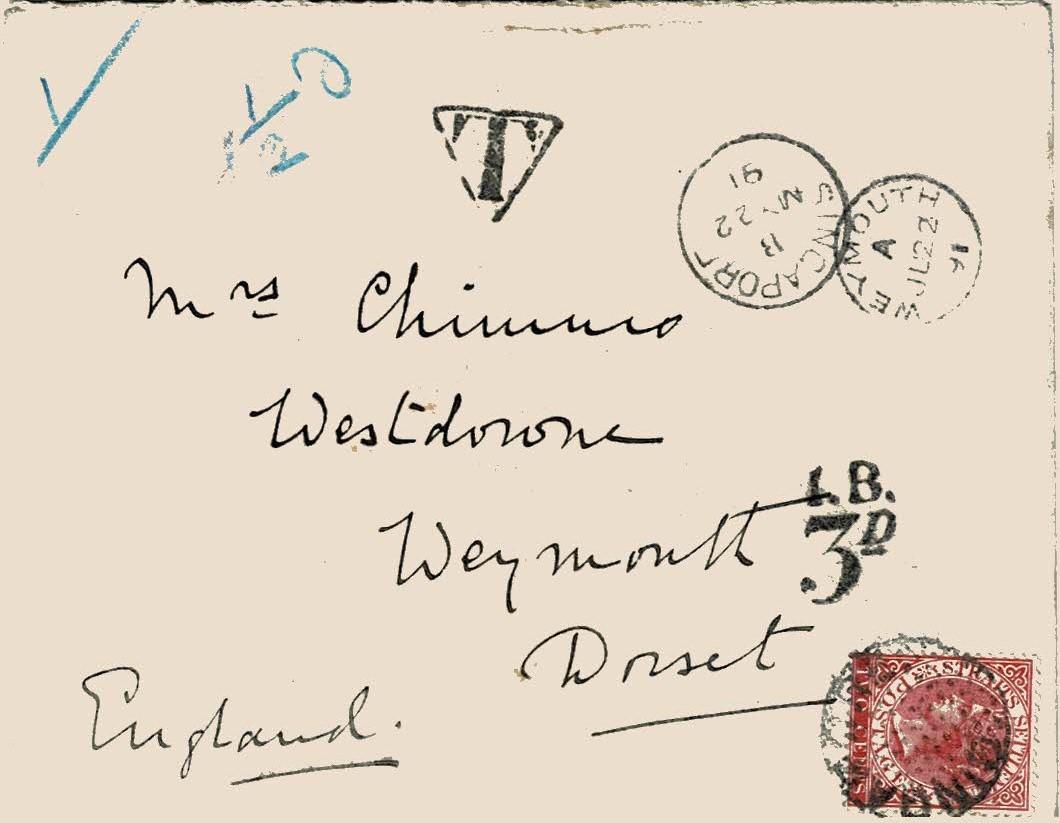 T
SINGAPORE
B
MY 22
91
WEYMOUTH
A
JU 22
91
Mrs Chimmo
Westdowne
Weymouth
I.B.
3D
Dorset
England.
STRAITS SETTLEMENTS POSTAGE
TWO CENTS